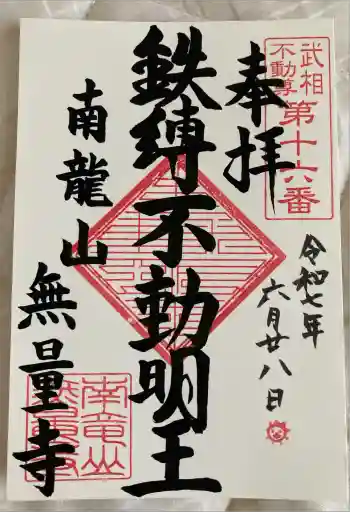 武相
不動尊
第十六番
奉拝
令和七年
六月廿八日
鉄縛不動明王
南龍山
無量寺
南竜山
無量寺